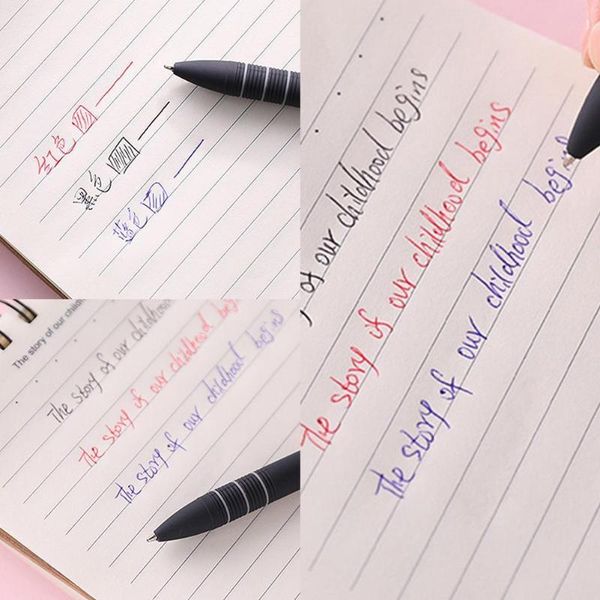 红色
黑色
蓝色
The story of our childh
The story of our childhood begins
The story of our childhood begins
The story of our childhood begins
of our childhood begins
The story of our childhood begins
The story of our childhood begins